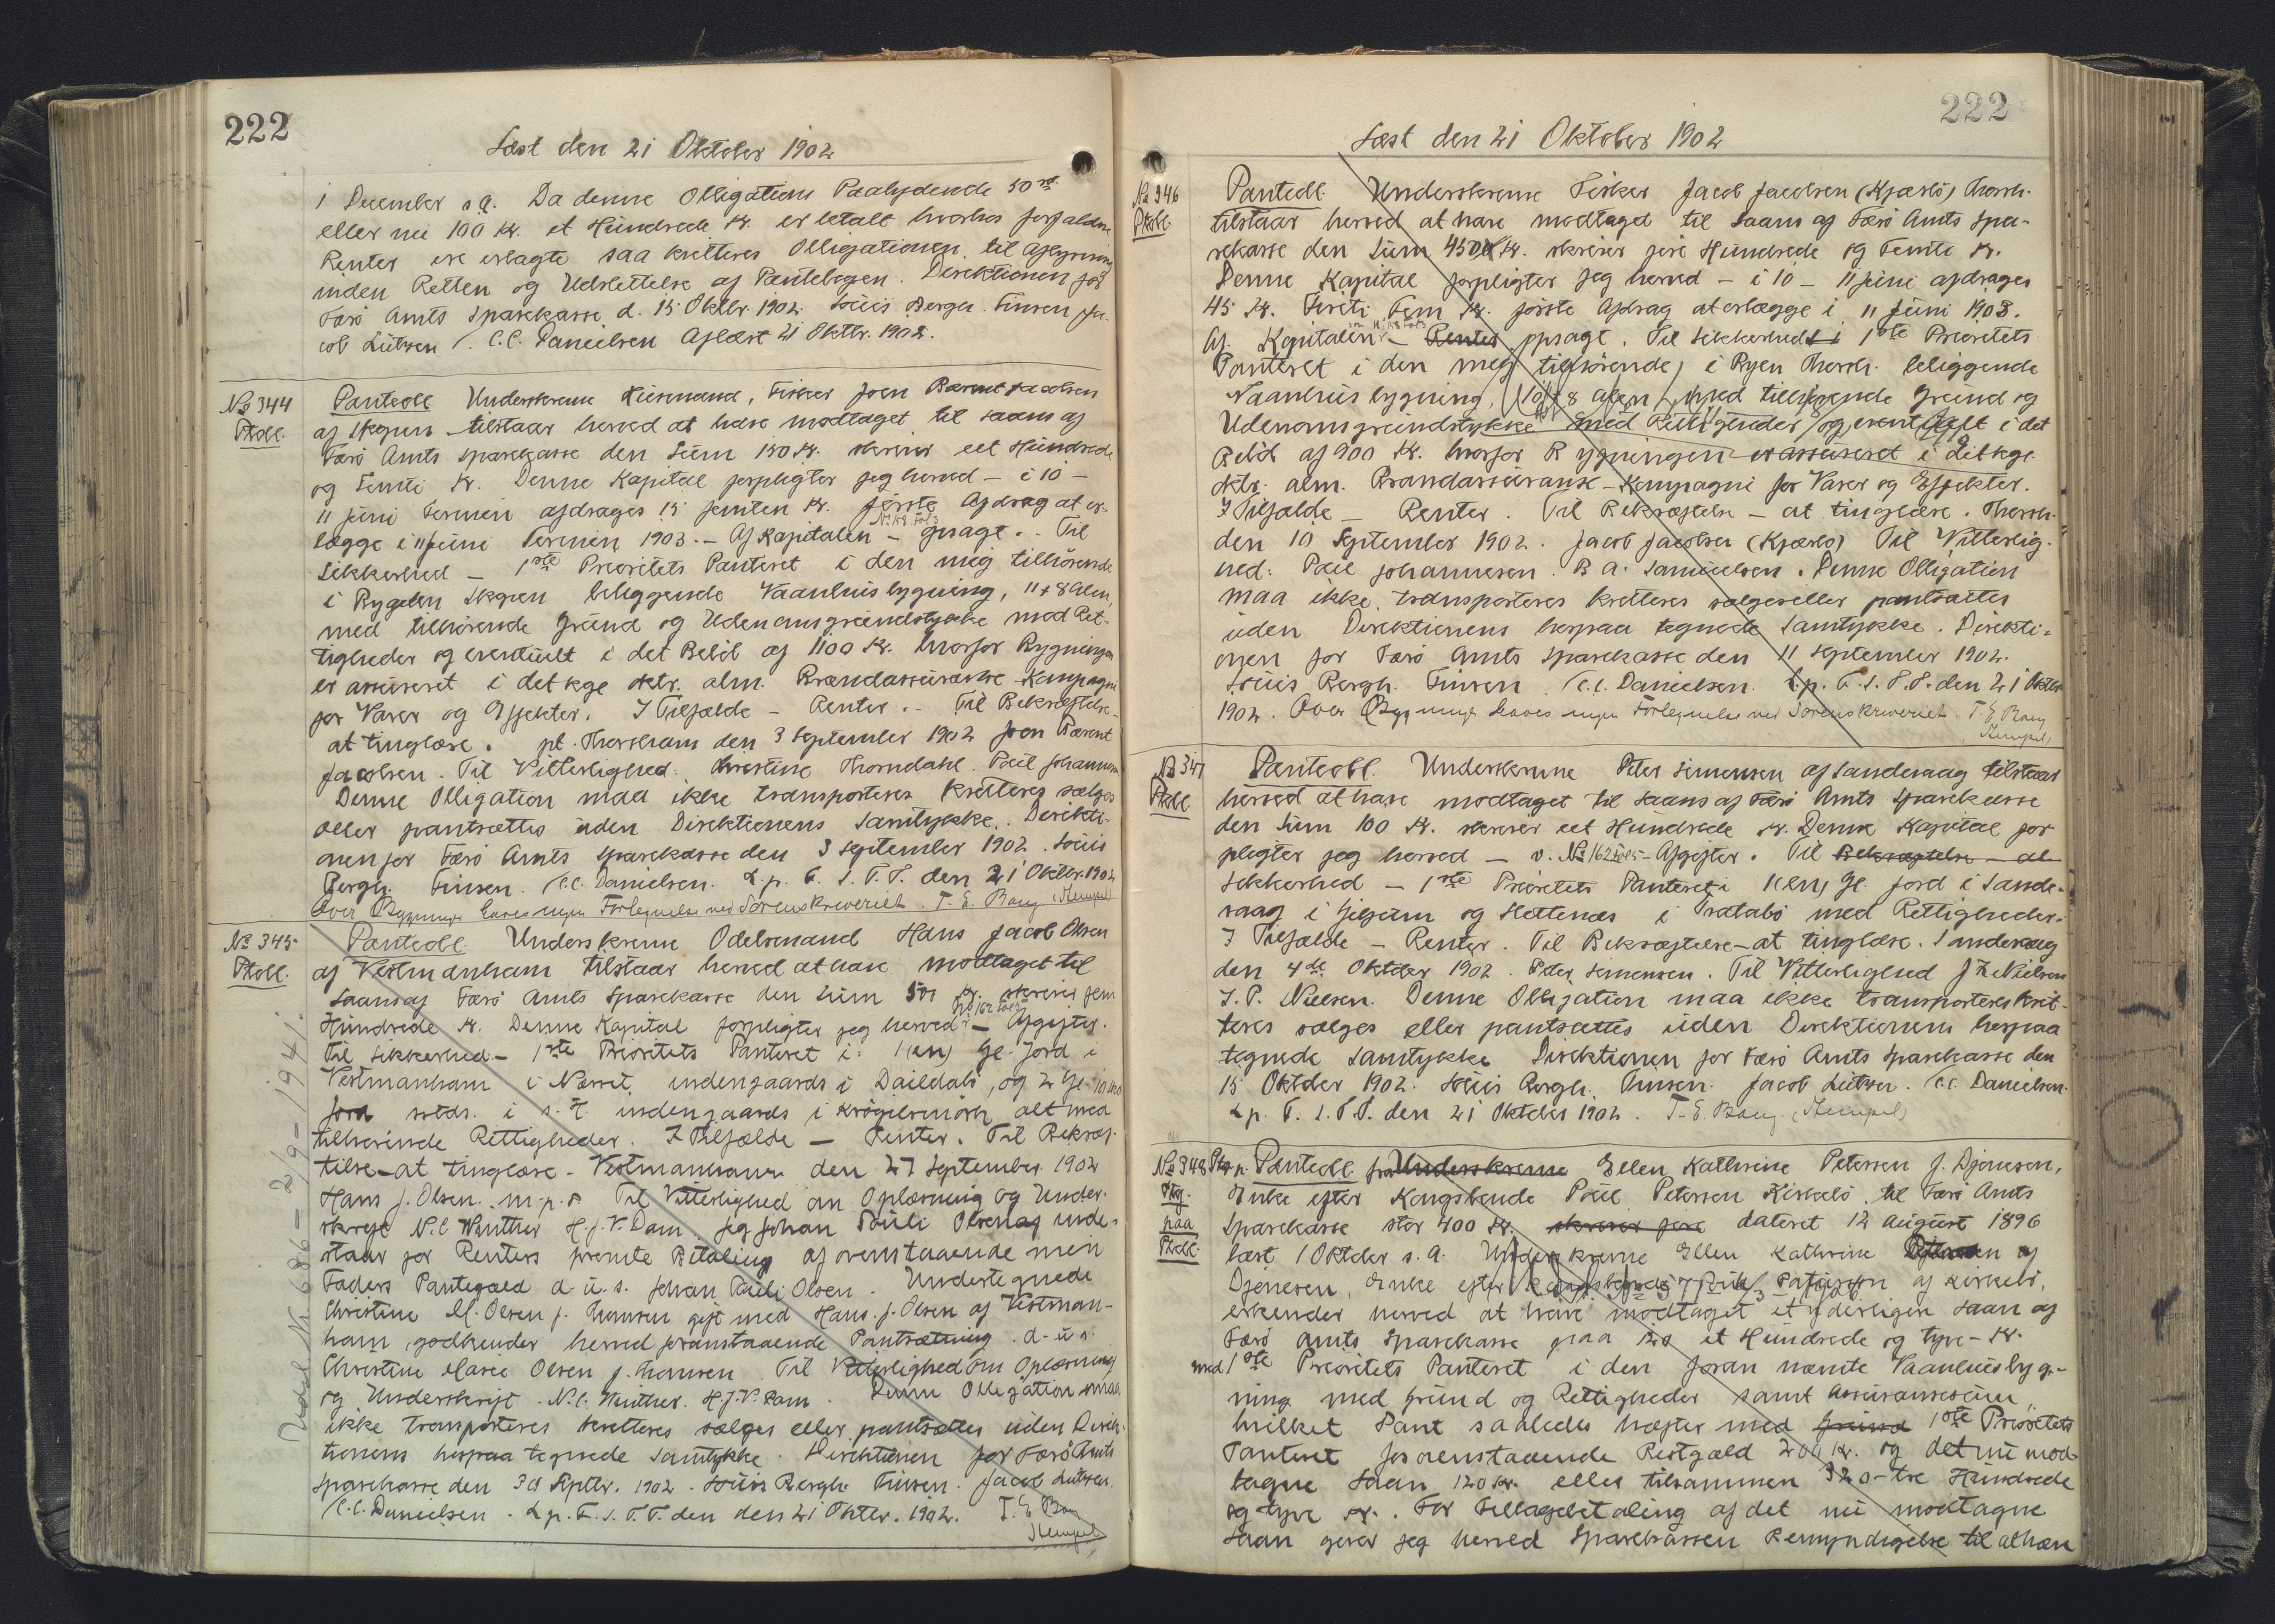 222
Læst den 21 Oktober 1902
1 December s.a. Da denne Obligations Paalydende 50 rd.
eller nu 100 Kr. et Hundrede Kr. er betalt hvorhos forfaldne
Renter ere erlagte saa kvitteres Obligationen til Aflysning
inden Retten og Udslettelse af Pantebogen. Direktionen for
Færö Amts Sparekasse d. 15 Oktbr. 1902. Louis Bergh. Finsen. Ja-
cob Lützen /. C.C. Danielsen Aflæst 21 Oktbr. 1902.
No 344
Ptobl.
Panteobl Underskrevne Huusmand, Fisker Joen Barent Jacobsen
af Skopun tilstaar herved at have modtaget til Laans af
Færö Amts Sparekasse den Sum 150 Kr. skriver eet Hundrede
og Femti Kr. Denne Kapital forpligter jeg herved - i 10 -
11 Juni Termin afdrages 15 femten Kr. første Afdrag at er-
lægge i 11 Juni Termin 1903. - Af Kapitalen - opsagt. - Til
Sikkerhed - 1ste Prioritets Panteret i den mig tilhörende
i Bygden Skopun beliggende Vaanhusbygning, 11 x 8 Alen,
med tilhörende Grund og Udenomsgrundstykke med Ret-
tigheder og eventuelt i det Belöb af 1100 Kr. hvorfor Bygningen
er assureret i det kge oktr. alm. Brandassurance-Kompagni
for Varer og Effekter. I Tilfælde - Renter. - Til Bekræftelse -
at tinglæse. pt. Thorshavn den 3 September 1902 Joen Barent
Jacobsen. Til Vitterlighed: Christine Thomdahl. Poul Johannesen
Denne Obligation maa ikke transporteres kvitteres sælges
eller pantsættes uden Direktionens Samtykke. Direkti-
onen for Færö Amts Sparekasse den 3 September 1902. Louis
Bergh. Finsen. C.C. Danielsen. L.p. F. S. T. P. den 21 Oktbr. 1902
Over Bygningen haves ingen Forlegnelse ved Sorenskriveriet. T. E. Bang (Stempel)
No 345
Ptobl.
Panteobl. Underskrevne Odelsmand Hans Jacob Olsen
af Vestmanhavn tilstaar herved at have modtaget til
Laans af Færö Amts Sparekasse den Sum 500 Kr. skriver fem
Hundrede Kr. Denne Kapital forpligter jeg herved - Afgifter.
Til Sikkerhed - 1ste Prioritets Panteret i: 1 (en) Gl. Jord i
Vestmanhavn i Nærvt indengaards i Daildabö, og 2 Gl. 10
Jord sstds. i s. T. indengaards i Krögilsmörk alt med
tilhörende Rettigheder. I Tilfælde - Renter. Til Bekræf-
telse - at tinglæse. Vestmanhavn den 27 September 1902
Hans J. Olsen. m. p. s Til Vitterlighed om Oplæsning og Under-
skrift N.C Winther H.J.V. Dam. Jeg Johan Pauli Olsen af inde-
staar for Renters promte Betaling af ovenstaaende min
Faders Pantegæld d. u. s. Johan Pauli Olsen. Undertegnede
Christine M. Olsen f. Thomsen gift med Hans J. Olsen af Vestman-
havn godkender herved foranstaaende Pantsætning. d. u. s.
Christine Marie Olsen f. Thomsen. Til Vitterlighed om Oplæsning
og Underskrift. N.C. Winther. H.J.V. Dam. Denne Obligation maa
ikke transporteres kvitteres sælges eller pantsættes uden Direk-
tionens herpaa tegnede Samtykke. Direktionen for Færö Amts
Sparekasse den 30 Septbr. 1902. Louis Bergh. Finsen. Jacob Lützen.
C.C. Danielsen. L.p. F. S. T. P. den den 21 Oktbr. 1902. T. E. Bang
Stempel
Udsl. No 686 - 2/9 - 1941.
222
Læst den 21 Oktober 1902
No 346
Ptobl.
Panteobl. Underskrevne Fisker Jacob Jacobsen (Kjærbö) Thorsh.
tilstaar herved at have modtaget til Laans af Færö Amts Spa-
rekasse den Sum 450 Kr. skriver fire Hundrede og Femti Kr.
Denne Kapital forpligter jeg herved - i 10 - 11 Juni afdrages
45 Kr. Fireti Fem Kr. förste Afdrag at erlægge i 11 Juni 1903.
Af Kapitalen - Renter opsagt. Til Sikkerhed i 1ste Prioritets
Panteret i den mig tilhörende, i Byen Thorsh. beliggende
Vaanhusbygning, 10 x 8 alen, med tilhörende Grund og
Udenomsgrundstykke med Rettigheder og eventuelt i det
Belöb af 900 Kr. hvorfor Bygningen er assureret i det kge.
oktr. alm. Brandassurance-Kompagni for Varer og Effekter.
I Tilfælde - Renter. Til Bekræftelse - at tinglæse. Thorsh.
den 10 September 1902. Jacob Jacobsen (Kjærbö) Til Vitterlig-
hed: Poul Johannesen. B A. Samuelsen. Denne Obligation
maa ikke transporteres kvitteres sælges eller pantsættes
uden Direktionens herpaa tegnede Samtykke. Direkti-
onen for Færö Amts Sparekasse den 11 September 1902.
Louis Bergh. Finsen. C.C. Danielsen. L.p. F. S. T. P. den 21 Oktbr
1902. Over Bygningen haves ingen Forlegnelse ved Sorenskriveriet. T. E. Bang
(Stempel)
No 347
Ptobl.
Panteobl. Underskrevne Peter Simonsen af Sandevaag tilstaar
herved at have modtaget til Laans af Færö Amts Sparekasse
den Sum 100 Kr. skriver eet Hundrede Kr. Denne Kapital for-
pligter jeg herved - v. No 162 - Afgifter. Til Bekræftelse - at
Sikkerhed - 1ste Prioritets Panteret i 1 (en) Gl. Jord i Sande-
vaag i Giljum og Hettenæs i Tratabö med Rettigheder.
I Tilfælde - Renter. Til Bekræftelse - at tinglæse. Sandevaag
den 4de Oktober 1902. Peter Simonsen. Til Vitterlighed J Z Nielsen
J. P. Nielsen. Denne Obligation maa ikke transporteres kvit-
teres sælges eller pantsættes uden Direktionens herpaa
tegnede Samtykke Direktionen for Færö Amts Sparekasse den
15 Oktober 1902. Louis Bergh. Finsen. Jacob Lützen. C.C. Danielsen.
L p. F. S. T. P. den 21 Oktober 1902. T. E. Bang. (Stempel)
No 348
paa
Ptobl.
Panteobl fra Underskrevne Ellen Kathrine Petersen f. Djonesen,
Enke efter Kongsbonde Poul Petersen Kirkebö. til Færö Amts
Sparekasse stor 400 Kr. skriver fire dateret 12 August 1896
læst 1 Oktober s. a. Underskrevne Ellen Kathrine af
Djonesen, Enke efter Kongsbonde Poul Petersen af Kirkebö,
erkender herved at have modtaget et yderligere Laan af
Færö Amts Sparekasse paa 120 et Hundrede og tyve - Kr.
med 1ste Prioritets Panteret i den foran nævnte Vaanhusbyg-
ning med Grund og Rettigheder samt Assurancesum,
hvilket Pant saaledes hæfter med Grund 1ste Prioritets
Panteret for ovenstaaende Restgæld 200 Kr. og det nu mod-
tagne Laan 120 Kr. eller tilsammen 320 - tre Hundrede
og tyve Kr. For Tilbagebetaling af det nu modtagne
Laan giver jeg herved Sparekassen Bemyndigelse til at hæve